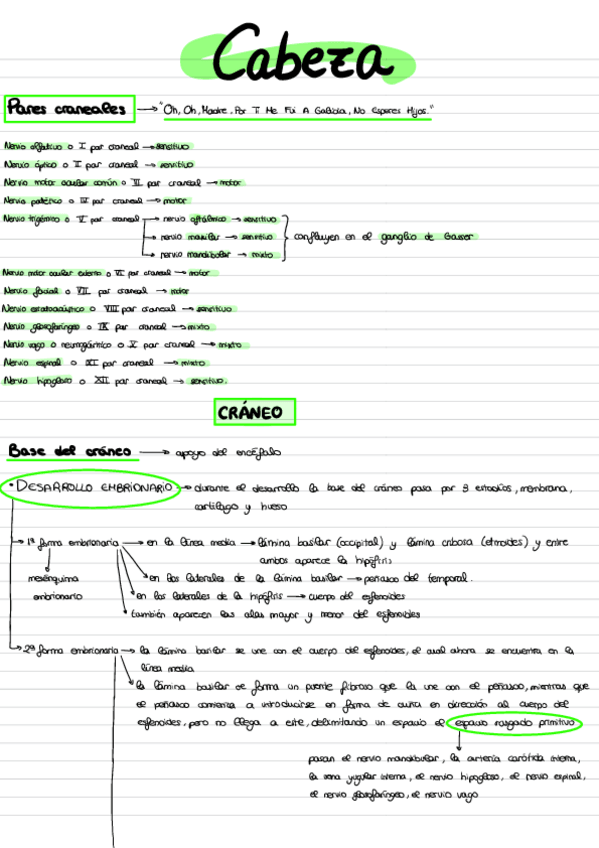 Cabeza
Pares craneales → "Oh, Oh, Madre. Por Ti Me Fui A Galicia, No Esperes Hijos."
Nervio olfativo o I par craneal → sensitivo
Nervio óptico o II par craneal → sensitivo
Nervio motor ocular común o III par craneal → motor
Nervio patético o IV par craneal → motor
Nervio trigémino o V par craneal → nervio oftálmico → sensitivo
→ nervio maxilar → sensitivo } confluyen en el ganglio de Gasser
→ nervio mandibular → mixto
Nervio motor ocular externo o VI par craneal → motor
Nervio facial o VII par craneal → motor
Nervio estatoacústico o VIII par craneal → sensitivo
Nervio glosofaríngeo o IX par craneal → mixto
Nervio vago o neumogástrico o X par craneal → mixto
Nervio espinal o XI par craneal → mixto
Nervio hipogloso o XII par craneal → sensitivo.
CRÁNEO
Base del cráneo → apoyo del encéfalo
• DESARROLLO EMBRIONARIO → durante el desarrollo la base del cráneo pasa por 3 estadios, membrana,
cartílago y hueso
→ 1ª forma embrionaria → en la línea media → lámina basilar (occipital) y lámina cribosa (etmoides) y entre
ambas aparece la hipófisis
mesénquima
embrionario
en los laterales de la lámina basilar → peñasco del temporal.
en los laterales de la hipófisis → cuerpo del esfenoides
también aparecen las alas mayor y menor del esfenoides
→ 2ª forma embrionaria → la lámina basilar se une con el cuerpo del esfenoides, el cual ahora se encuentra en la
línea media
la lámina basilar se forma un puente fibroso que la une con el peñasco, mientras que
el peñasco comienza a introducirse en forma de cuña en dirección al cuerpo del
esfenoides, pero no llega a este, delimitando un espacio el espacio rasgado primitivo
pasan el nervio mandibular, la arteria carótida interna,
la vena yugular interna, el nervio hipogloso, el nervio espinal,
el nervio glosofaríngeo, el nervio vago